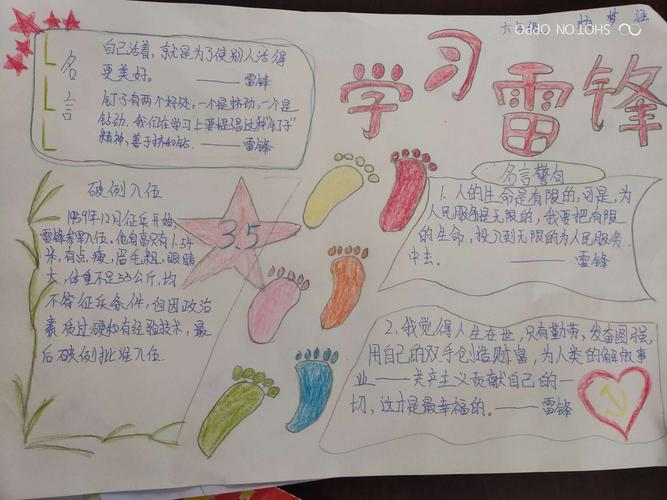 学习雷锋
名言
自己活着，就是为了使别人活得
更美好。——雷锋
钉子有两个好处，一个是挤劲，一个是
钻劲。我们在学习上要提倡这种"钉子"
精神，善于挤和钻。——雷锋
破例入伍
1959年12月征兵开始，
雷锋参军入伍。他身高只有1.54
米，有点瘦，眉毛粗，眼睛
大，体重不足55公斤，均
不符征兵条件，但因政治
素质过硬和有经验技术，最
后破例批准入伍.
3.5
名言警句
1.人的生命是有限的，可是，为
人民服务是无限的，我要把有限
的生命，投入到无限的为人民服务
中去。——雷锋
2.我觉得人生在世，只有勤劳，发奋图强，
用自己的双手创造财富，为人类的解放事
业——共产主义贡献自己的一
切，这才是最幸福的。——雷锋
SHOT ON OPPO